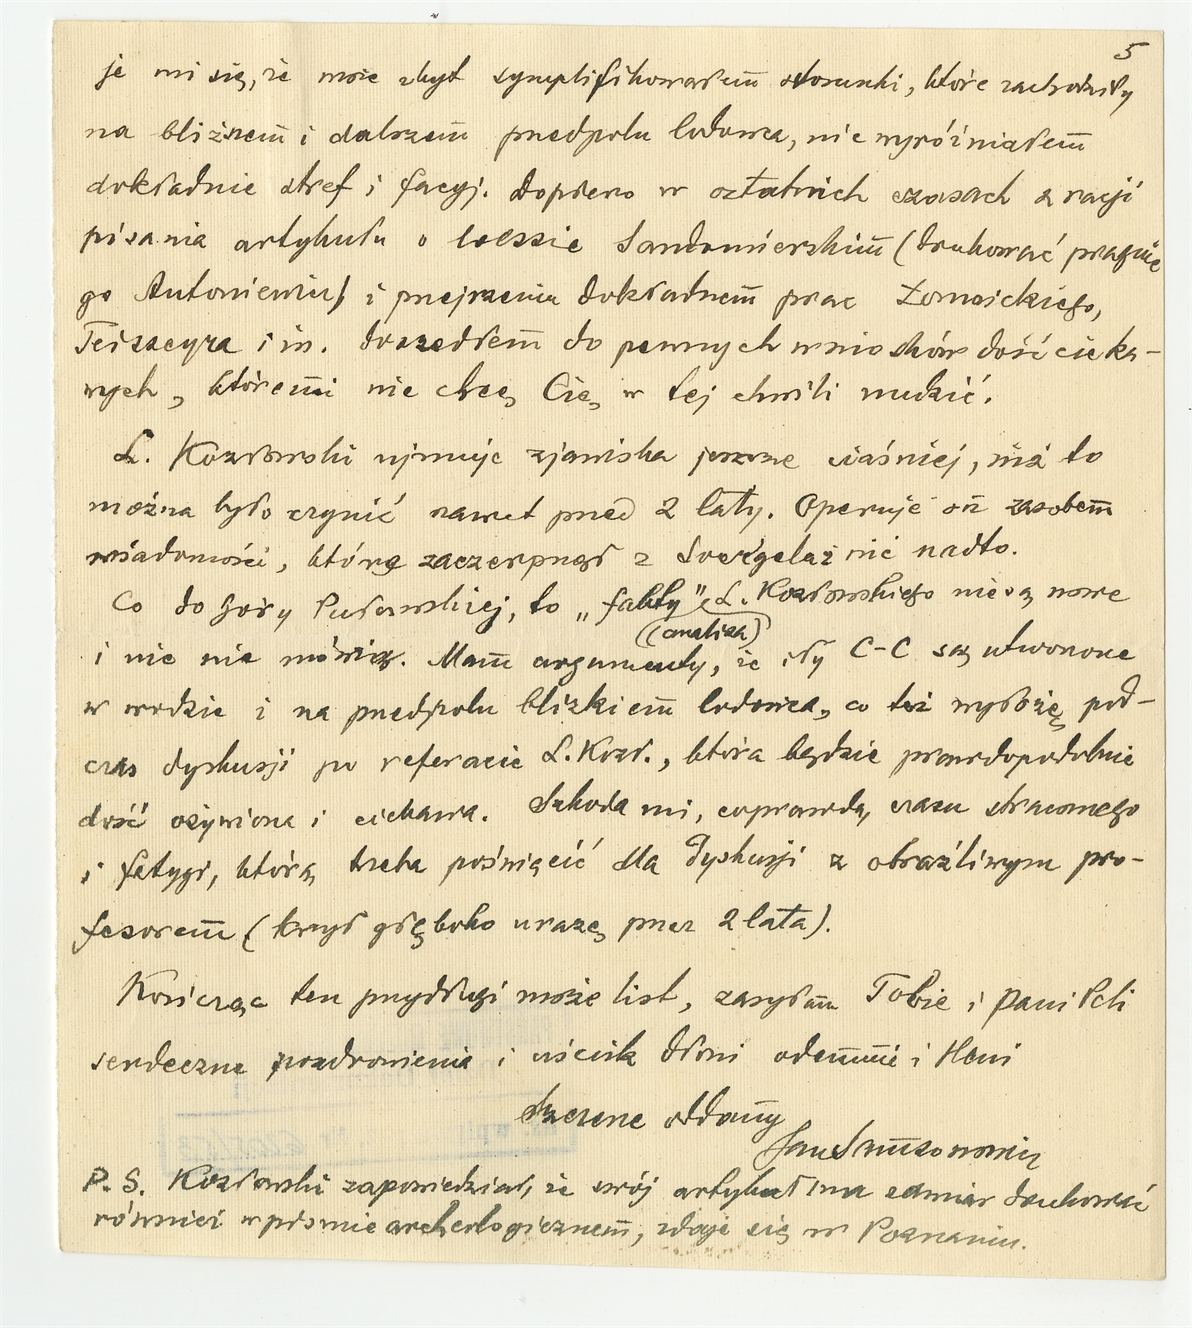 5
je mi się, że może zbyt symplifikowałem stosunki, które zachodziły
na bliższem i dalszem przedpolu lodowca, nie wyróżniałem
dokładnie stref i facyj. Dopiero w ostatnich czasach z racji
pisania artykułu o loessie Sandomierskim (drukować pragnie
go Antoniewicz) i przejrzeniu dokładnem prac Łomnickiego,
Teisseyra i in. doszedłem do pewnych wniosków dość cieka-
wych, któremi nie chcę Cię w tej chwili nudzić.
L. Kozłowski ujmuje zjawiska jeszcze ciaśniej, niż to
można było czynić nawet przed 2 laty. Operuje on zasobem
wiadomości, którą zaczerpnął z Soergela i nic nadto.
Co do Góry Puławskiej, to „fakty" L. Kozłowskiego nie są nowe
(analiza)
i nic nie mówią. Mam argumenty, że iły C-C są utworzone
w wodzie i na przedpolu blizkiem lodowca, co też wyłożę pod-
czas dyskusji po referacie L. Kozł., która będzie prawdopodobnie
dość ożywiona i ciekawa. Szkoda mi, coprawda, czasu straconego
i fatygi, którą trzeba poświęcić dla dyskusji z obraźliwym pro-
fesorem (krył głęboko urazę przez 2 lata).
Kończąc ten przydługi może list, zasyłam Tobie i Pani
serdeczne pozdrowienia i uścisk dłoni odemnie i Heni
Szczerze oddany
Jan Samsonowicz
P.S. Kozłowski zapowiedział, że swój artykuł ma zamiar drukować
również w piśmie archeologicznem, zdaje się w Poznaniu.